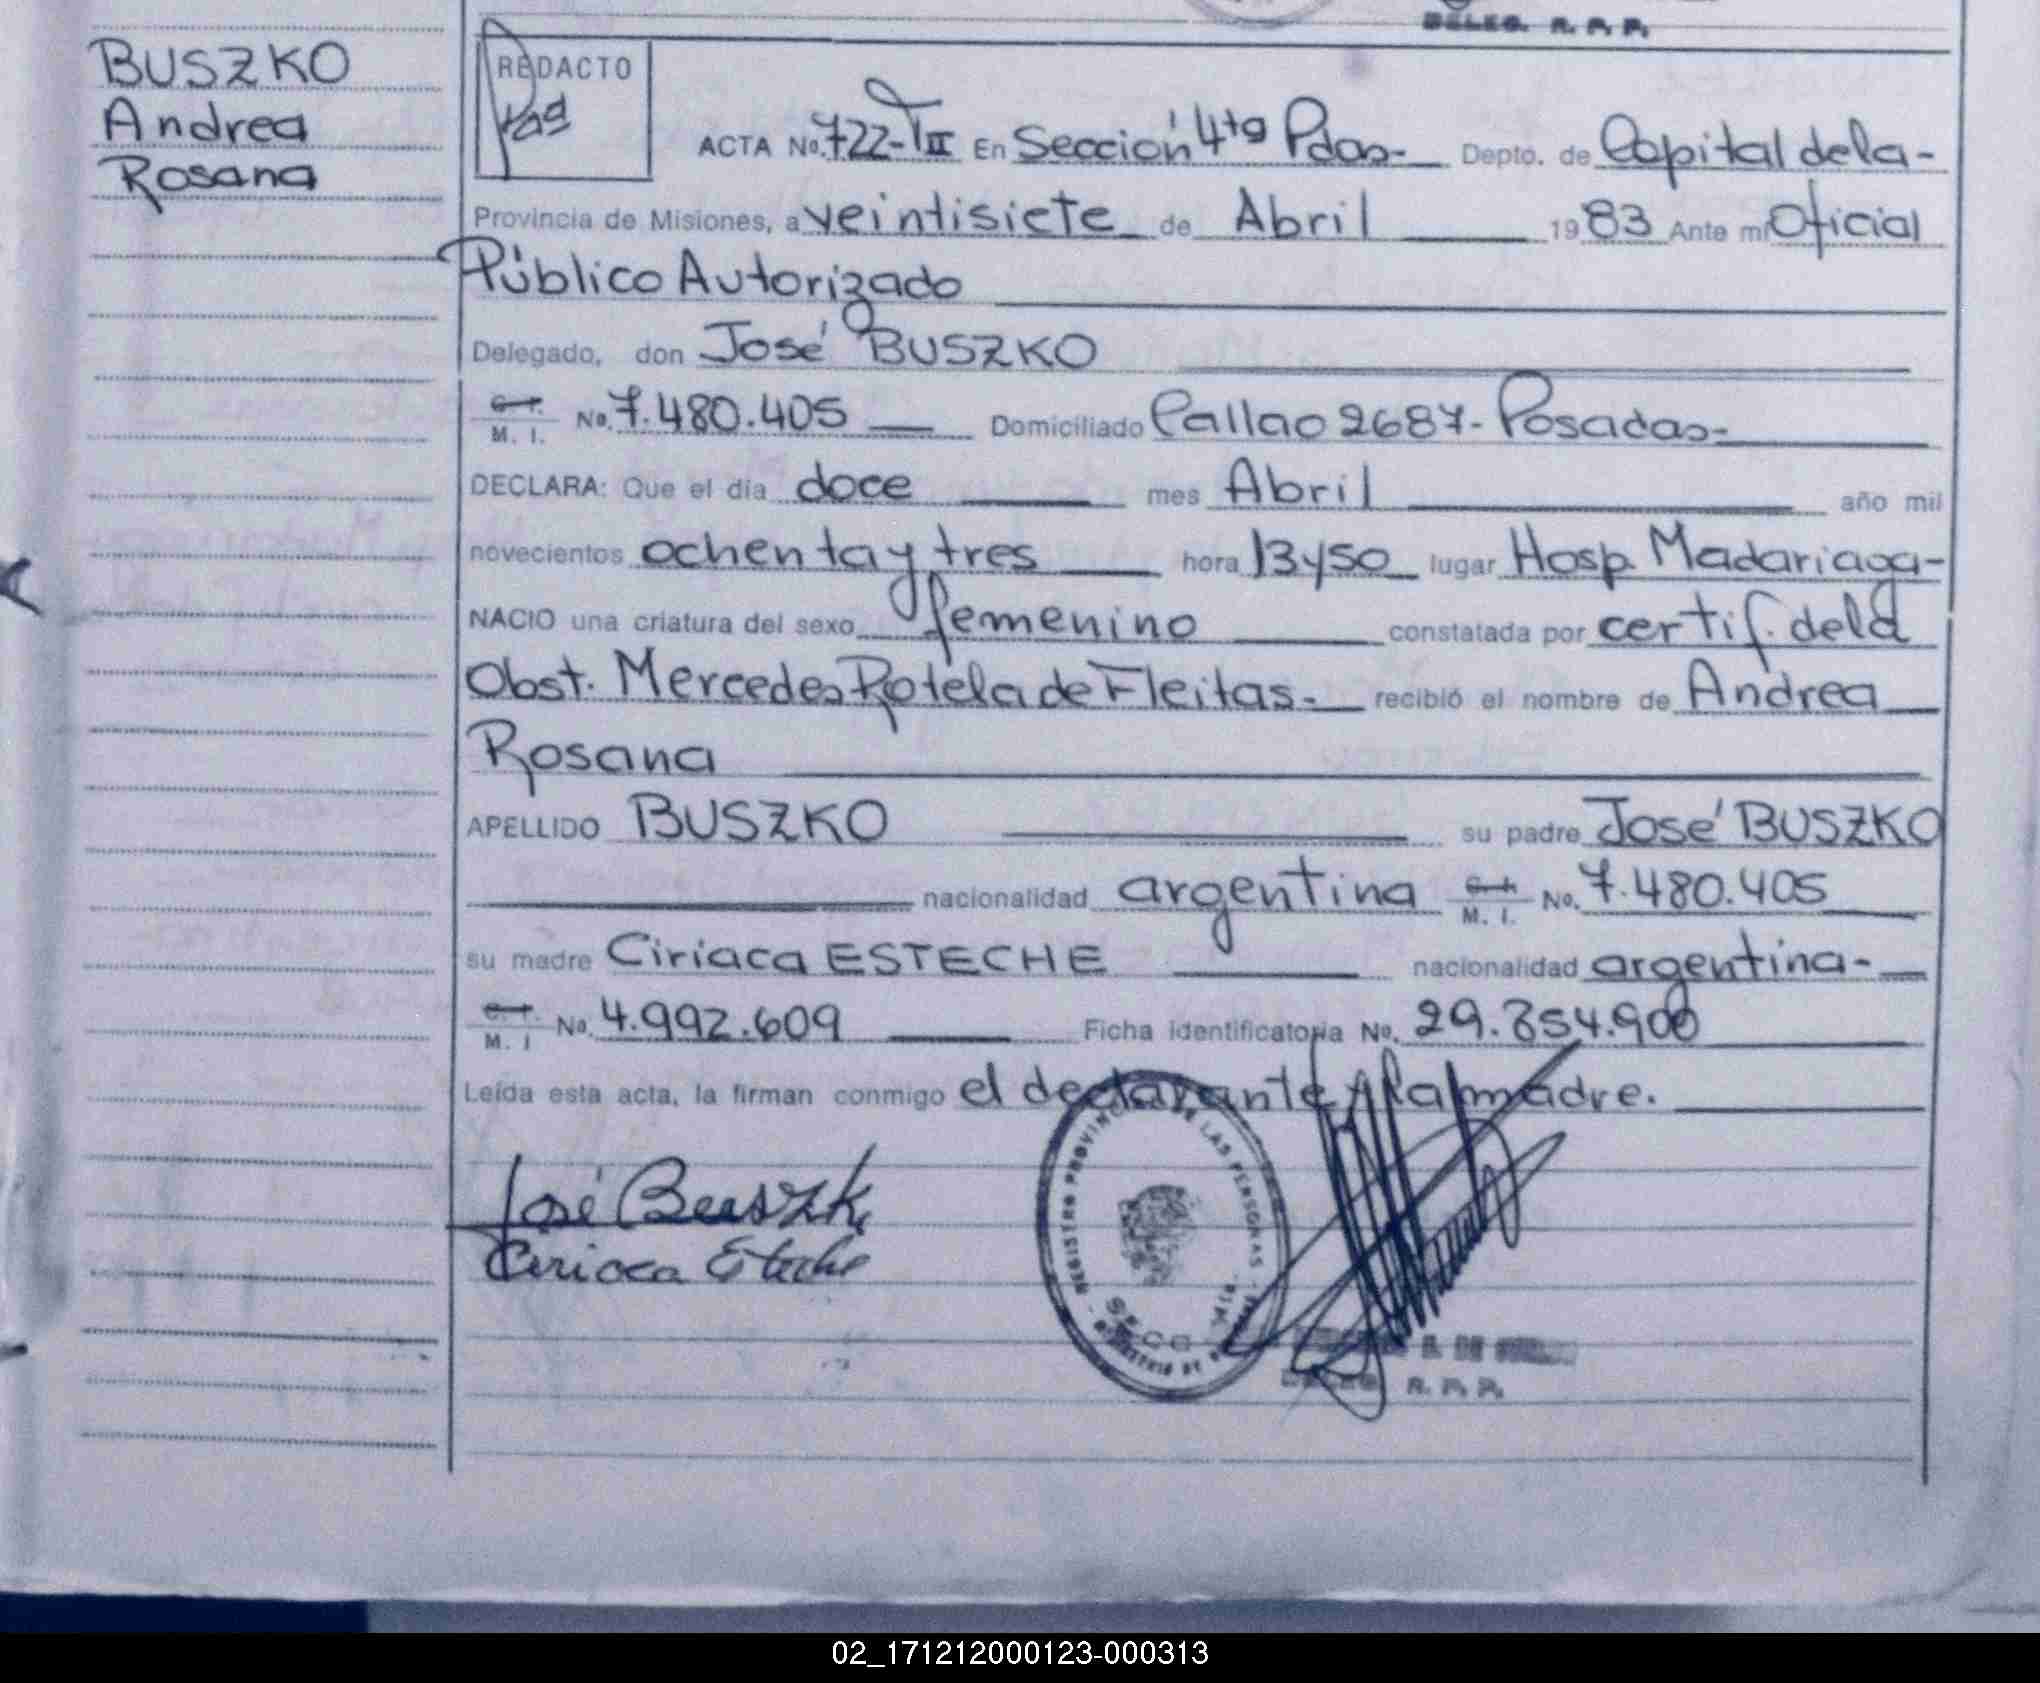 DELEG. R. P. P.
BUSZKO
Andrea
Rosana
REDACTO
ACTA No. 722-TII En Sección 4ta Pdas- Depto. de Capital de la-
Provincia de Misiones, a veintisiete de Abril 1983 Ante mi Oficial
Público Autorizado
Delegado, don José BUSZKO
C. I. M. I. No. 7.480.405 Domiciliado Callao 2687- Posadas-
DECLARA: Que el día doce mes Abril año mil
novecientos ochenta y tres hora 13y50 lugar Hosp. Madariaga-
NACIO una criatura del sexo femenino constatada por certif. de la
Obst. Mercedes Rotela de Fleitas.- recibió el nombre de Andrea
Rosana
APELLIDO BUSZKO su padre José BUSZKO
nacionalidad argentina C. I. M. I. No. 7.480.405
su madre Ciriaca ESTECHE nacionalidad argentina-
C. I. M. I No. 4.992.609 Ficha identificatoria No. 29.854.900
Leída esta acta, la firman conmigo el declarante y la madre.
José Buszk
Ciriaca Esteche
REGISTRO PROVINCIAL DE LAS PERSONAS
R. P. P.
02_171212000123-000313